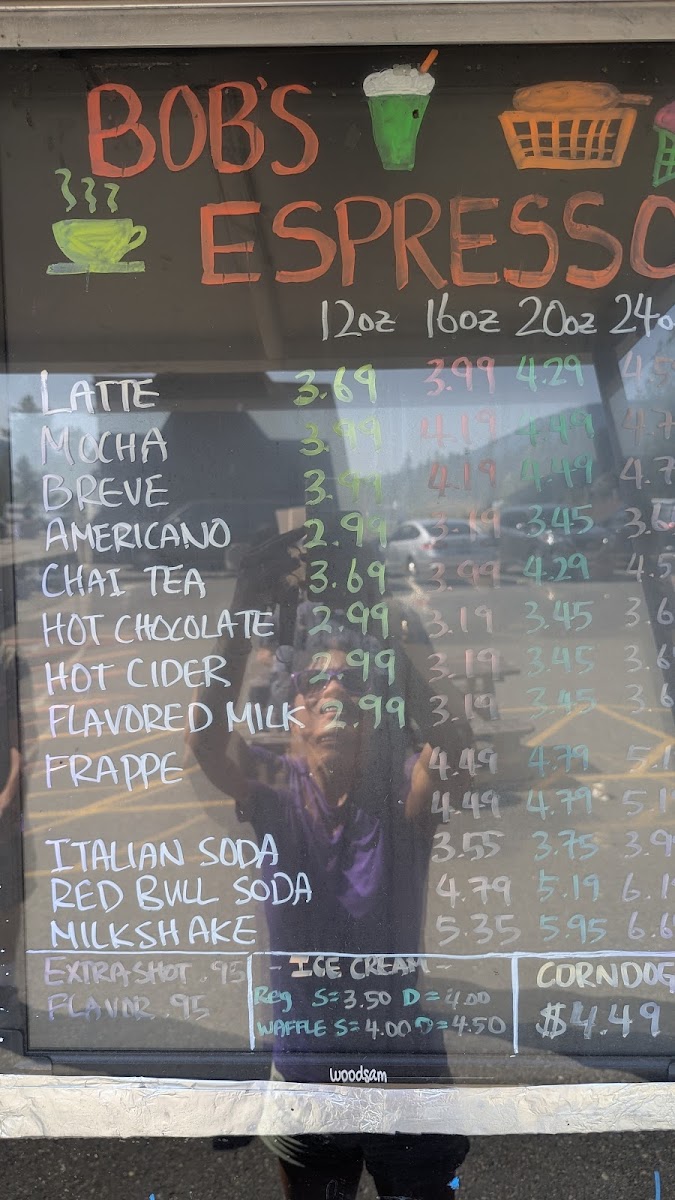 BOB'S
ESPRESSO
12oz 16oz 20oz 24o
LATTE 3.69 3.99 4.29 4.5
MOCHA 3.99 4.19 4.49 4.7
BREVE 3.99 4.19 4.49 4.7
AMERICANO 2.99 3.19 3.45 3.6
CHAI TEA 3.69 3.99 4.29 4.5
HOT CHOCOLATE 2.99 3.19 3.45 3.6
HOT CIDER 2.99 3.19 3.45 3.6
FLAVORED MILK 2.99 3.19 3.45 3.6
FRAPPE 4.49 4.79 5.1
4.49 4.79 5.1
ITALIAN SODA 3.55 3.75 3.9
RED BULL SODA 4.79 5.19 6.1
MILKSHAKE 5.35 5.95 6.6
EXTRA SHOT .95
FLAVOR .95
- ICE CREAM -
Reg S=3.50 D=4.00
WAFFLE S=4.00 D=4.50
CORNDOG
$4.49
woodsam